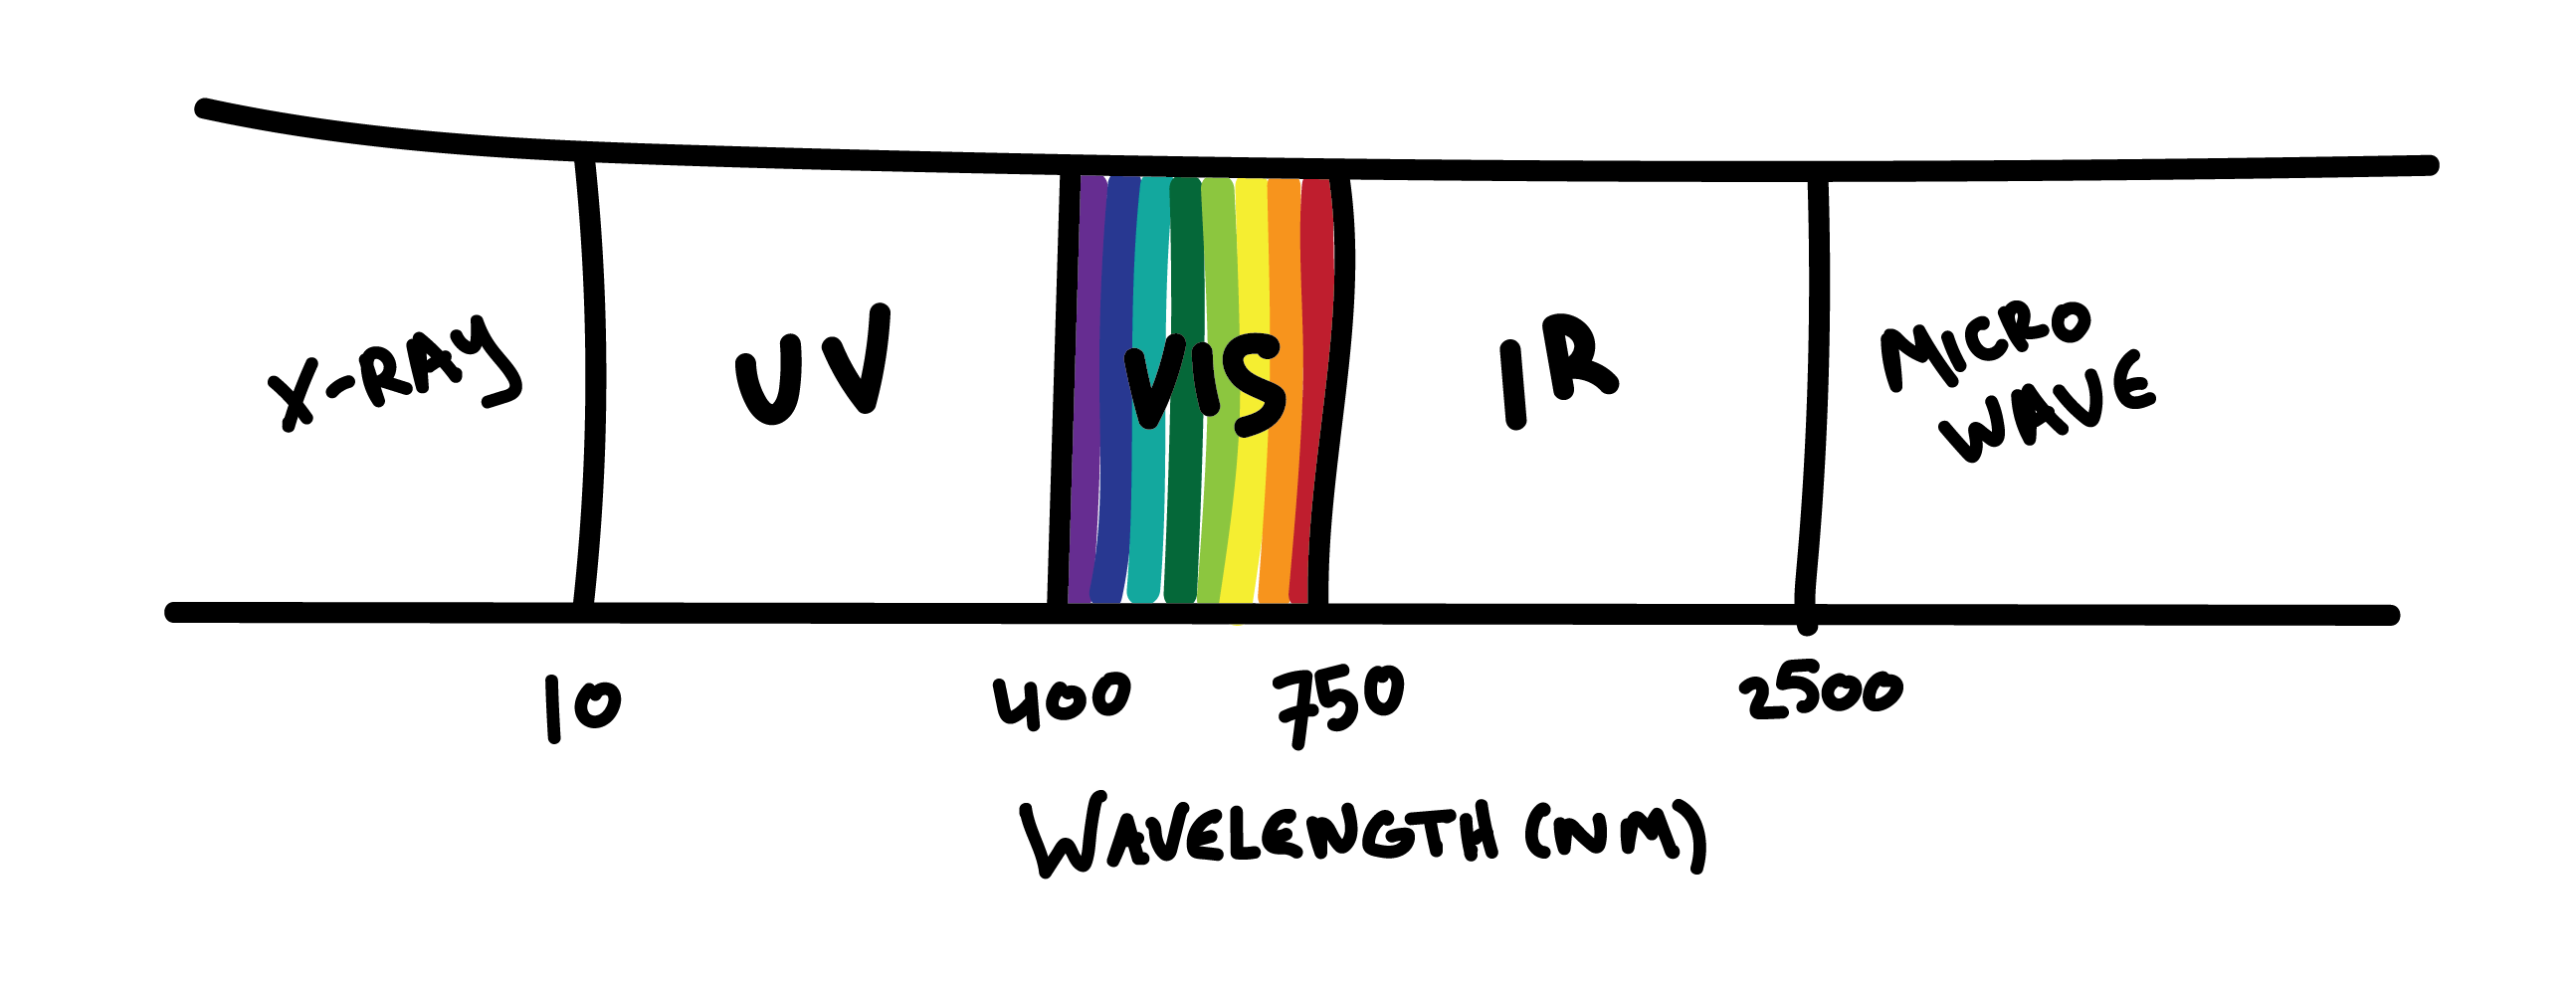 X-RAY
UV
VIS
IR
MICRO
WAVE
10
400
750
2500
WAVELENGTH (NM)